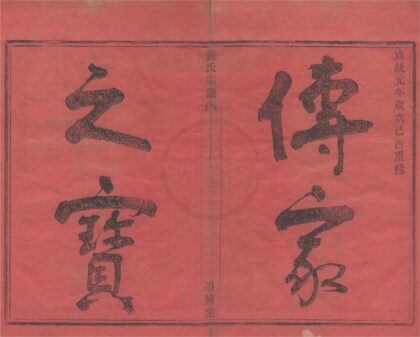 宣統元年歲次己酉重修
傳家
氏宗譜
堂
之寶